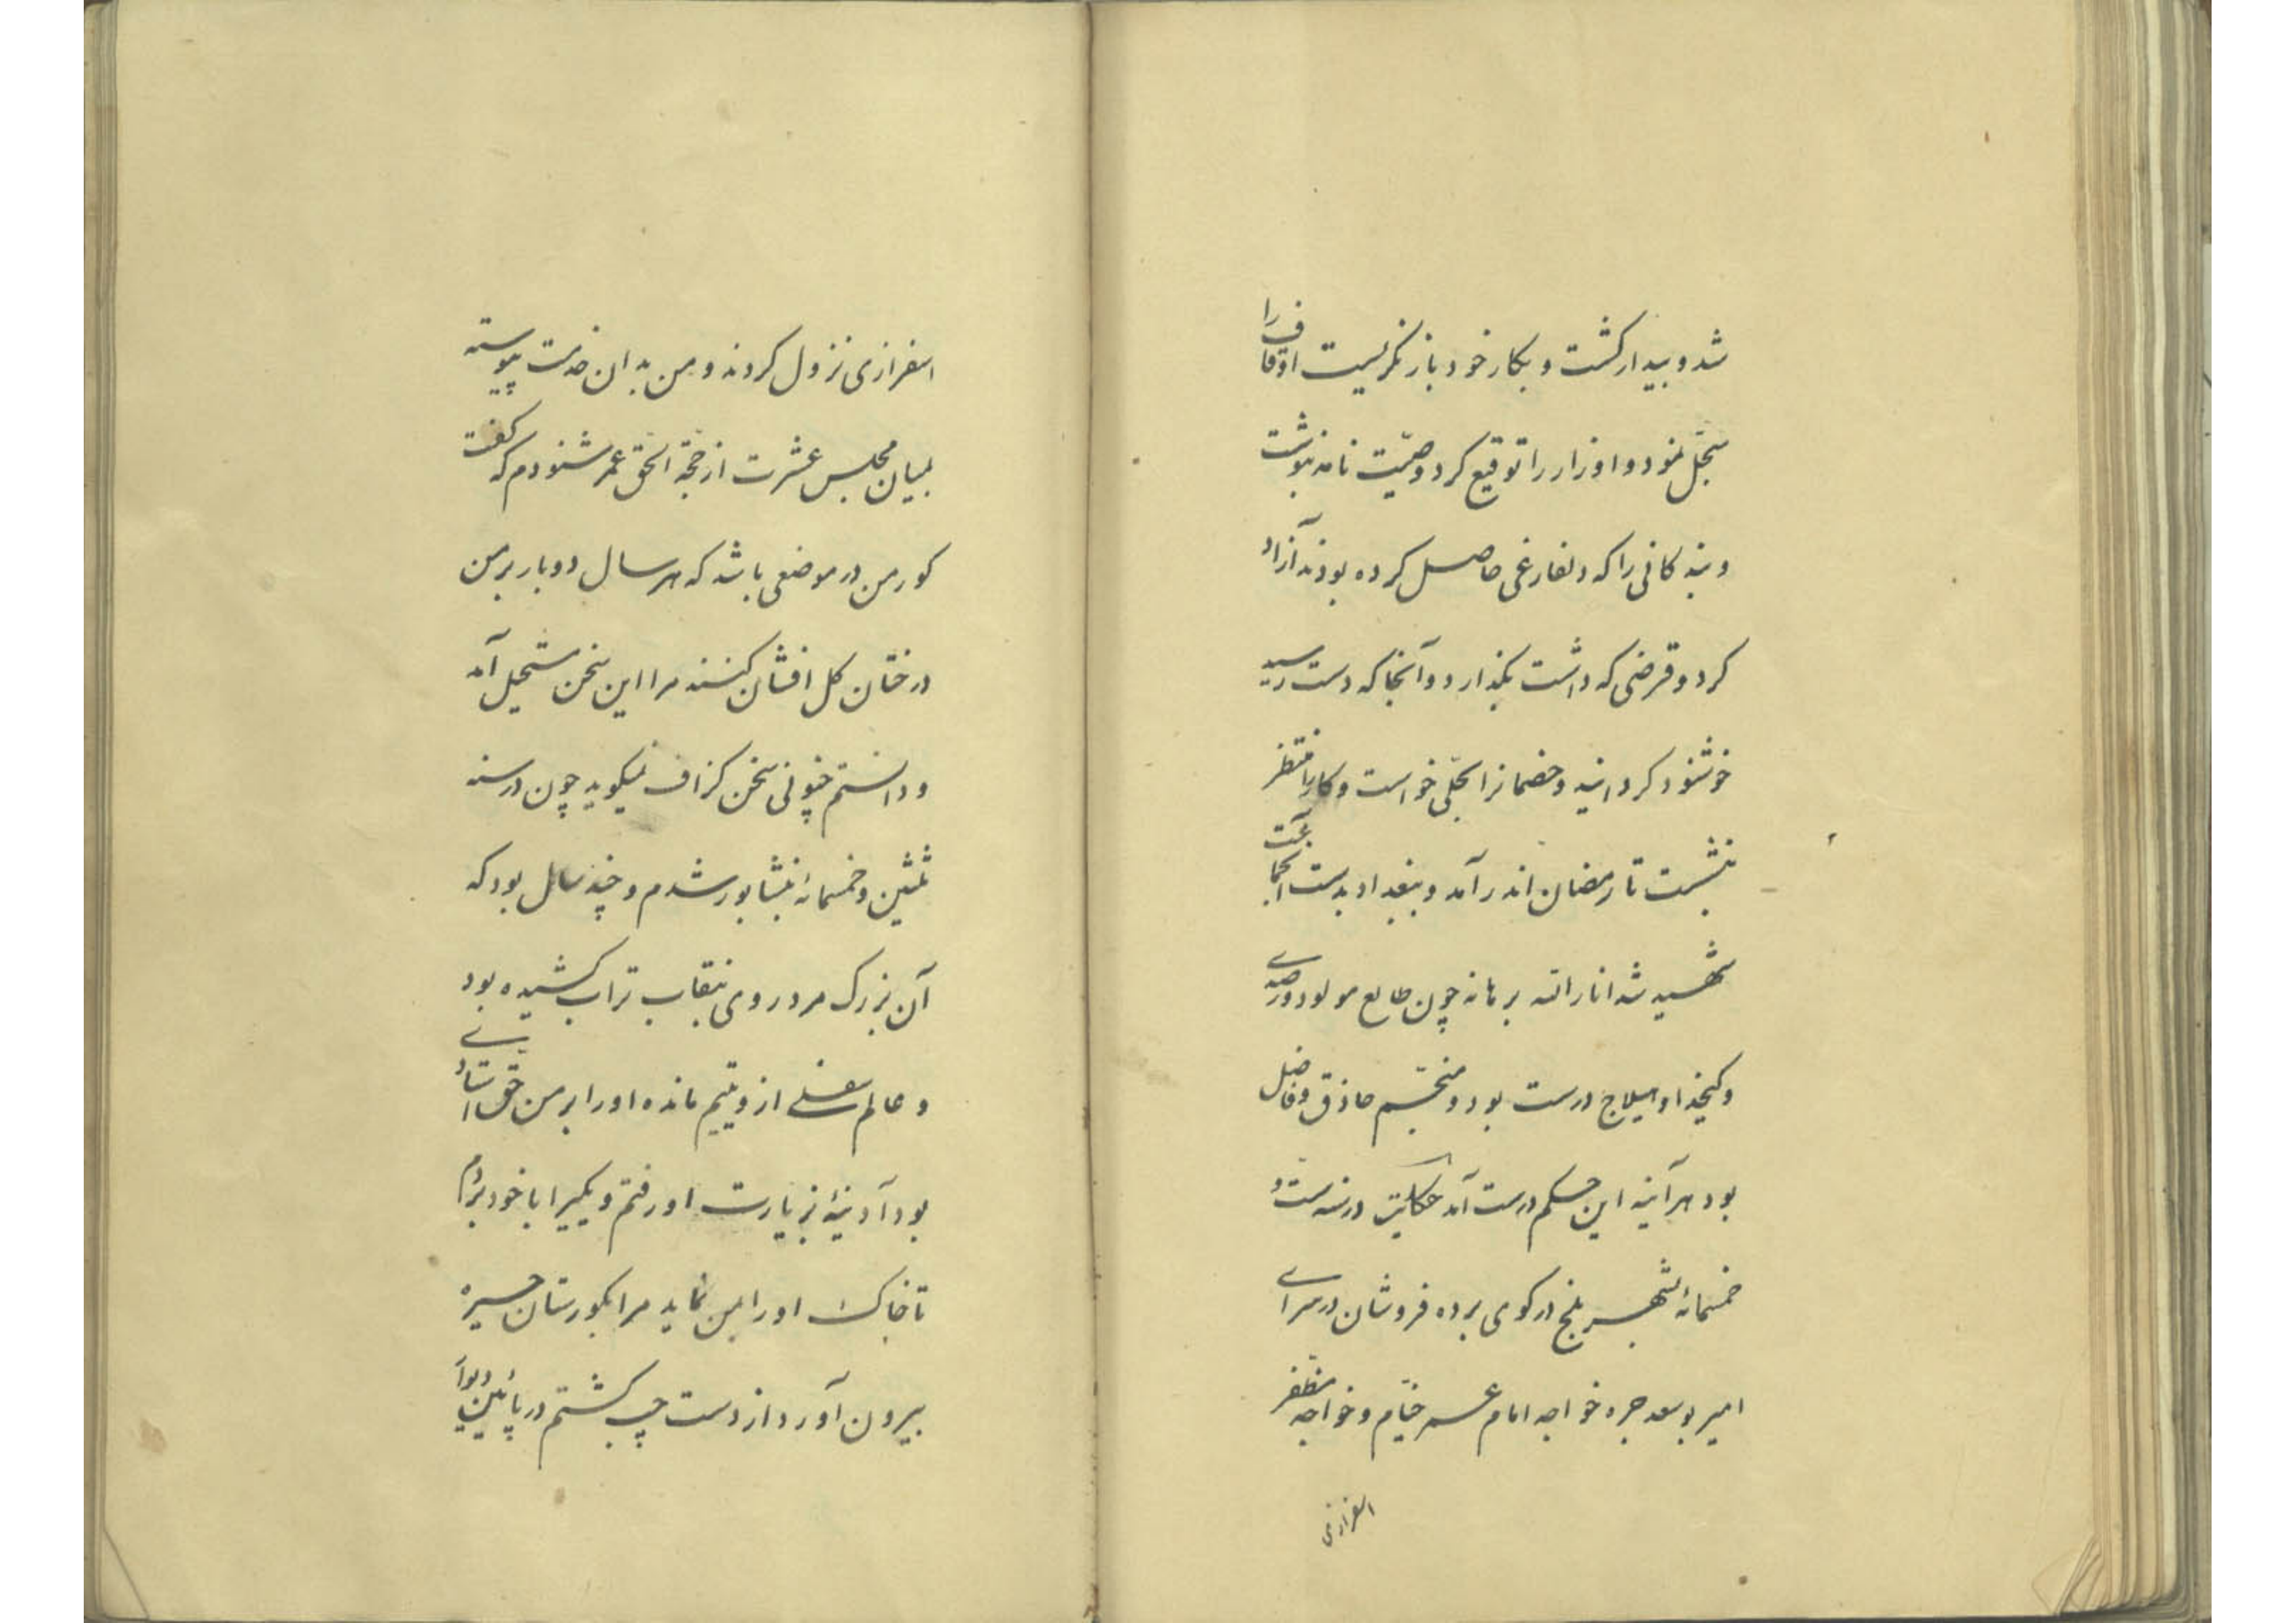 شد و بیدار کشت و بکار خود باز نکریست اوقاف را
سجّل نمود و اوزار را توقیع کرد و وصیّت نامه بنوشت
و بندکانی را که دلفارغی حاصل کرده بودند آزاد
کرد و قرضی که داشت بکذارد و آنجا که دست رسید
خوشنود کردانید و خصمانرا بحلّی خواست و کار را منتظر
بنشست تا رمضان اندر آمد و ببغداد بدست آن جماعت
شهید شد انار الله برهانه چون طالع مولود رصدی
و کدخدا و هیلاج درست بود و منجّم حاذق و فاضل
بود هرآینه این حکم درست آمد حکایت در سنه ستّ و
خمسمائه بشهر بلخ در کوی برده فروشان در سرای
امیر بوسعد جره خواجه امام عمر خیّام و خواجه مظفّر
اسفرازی
اسفرازی نزول کردند و من بدان خدمت پیوسته
بمیان مجلس عشرت از حجّة الحق عمر شنودم که کفت
کور من در موضعی باشد که هر سال دو بار بر من
درختان کل افشان کنند مرا این سخن مستحیل آمد
و دانستم چنوئی سخن کزاف نمیکوید چون در سنه
ثلثین و خمسمائه بنشابور شدم و چند سال بود که
آن بزرک مرد روی بنقاب تراب کشیده بود
و عالم سفلی ازو یتیم مانده او را بر من حق استادی
بود آدینهٔ بزیارت او رفتم و یکیرا با خود ببردم
تا خاک او را بمن نماید مرا بکورستان حیره
بیرون آورد از دست چپ کشتم در پائین دیوار